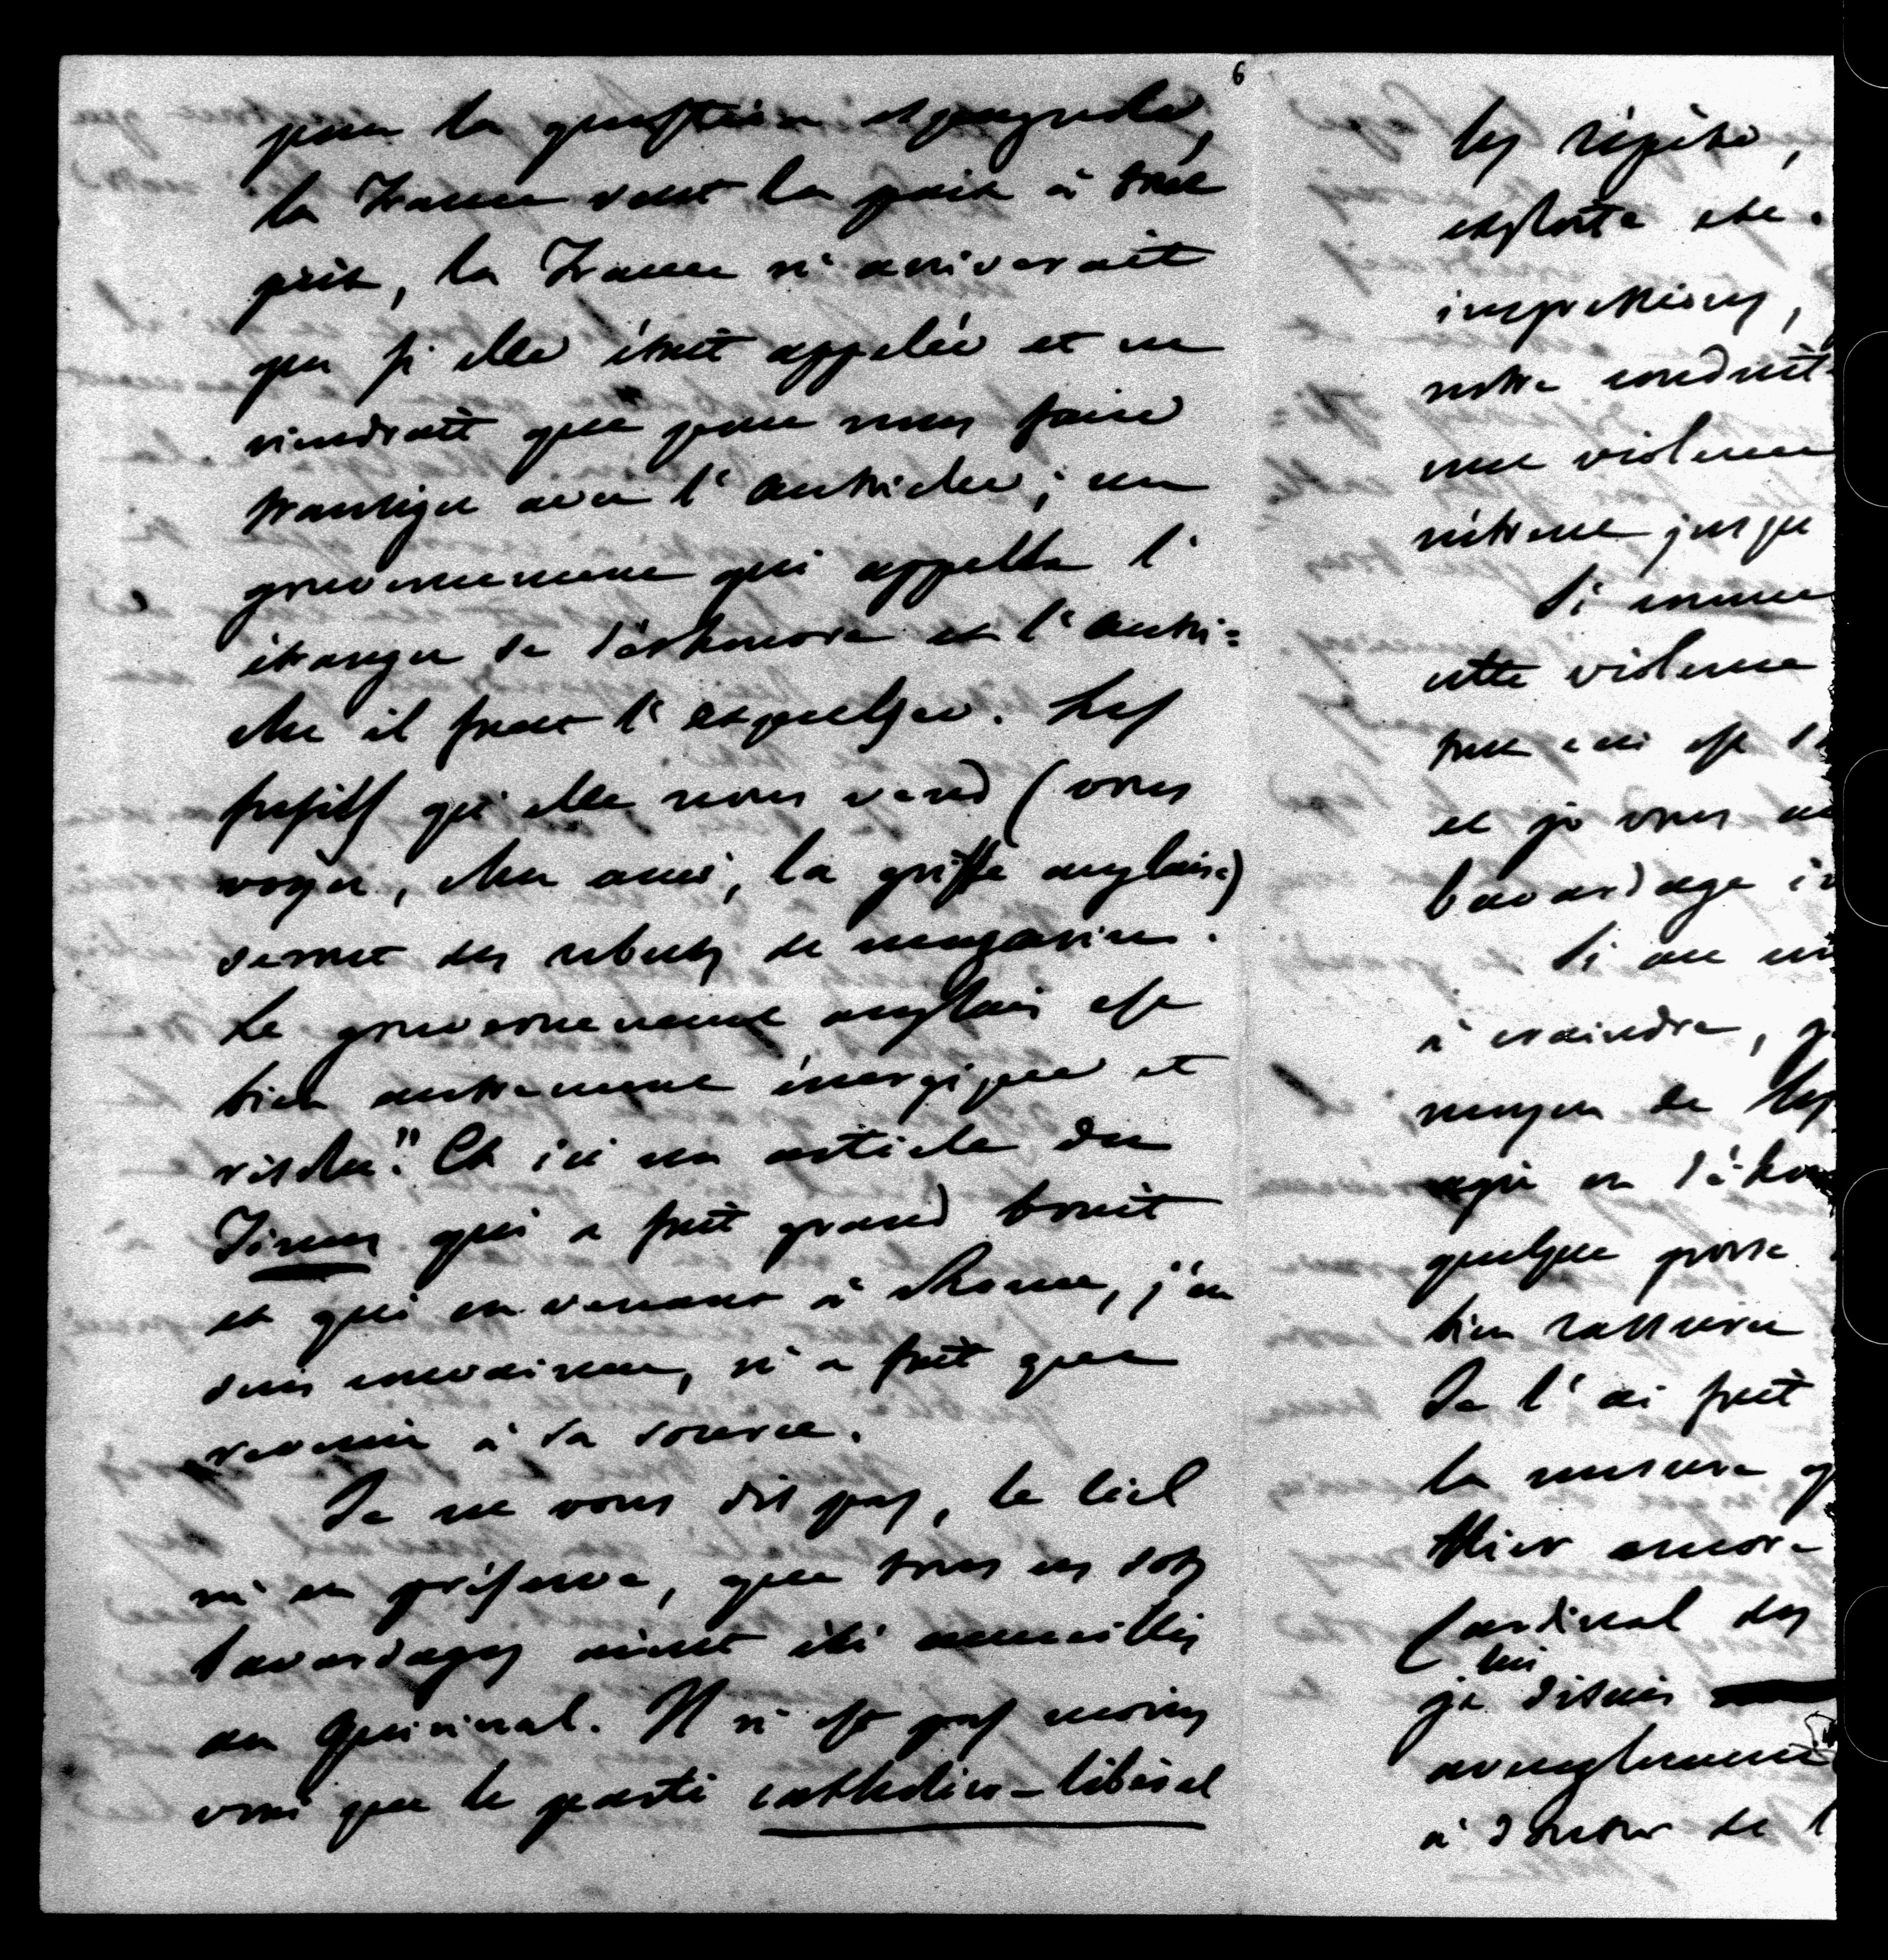 6
pour la question espagnole,
la France veut la paix à tout
prix, la France n'arriverait
que si elle était appelée et ne
viendrait que pour nous faire
transiger avec l'Autriche; un
gouvernement qui appelle l'
étranger se déshonore et l'Autri=
che il faut l'expulser. Les
fusils qu'elle nous vend (vous
voyez, cher ami, la griffe anglaise)
seront des rebuts de magasins.
Le gouvernement anglais est
bien autrement énergique et
riche." Et ici un article du
Times qui a fait grand bruit
et qui en venant à Rome, j'en
suis convaincu, n'a fait que
revenir à sa source.
Je ne vous dis pas, le Ciel
m'en préserve, que tous ces sots
bavardages aient été accueillis
au Quirinal. Il n'est pas moins
vrai que le parti catholico-libéral
les répète,
exploite etc.
impressions,
notre conduite
une violence
même jusqu
Si comme
cette violence
tout ceci est
et je vous
bavardage
Si on
à craindre,
moyen de
agir en
quelque
bien rassurer
Je l'ai fait
la mesure
Hier encore
Cardinal des
lui
je disais
aveuglement
à douter de l